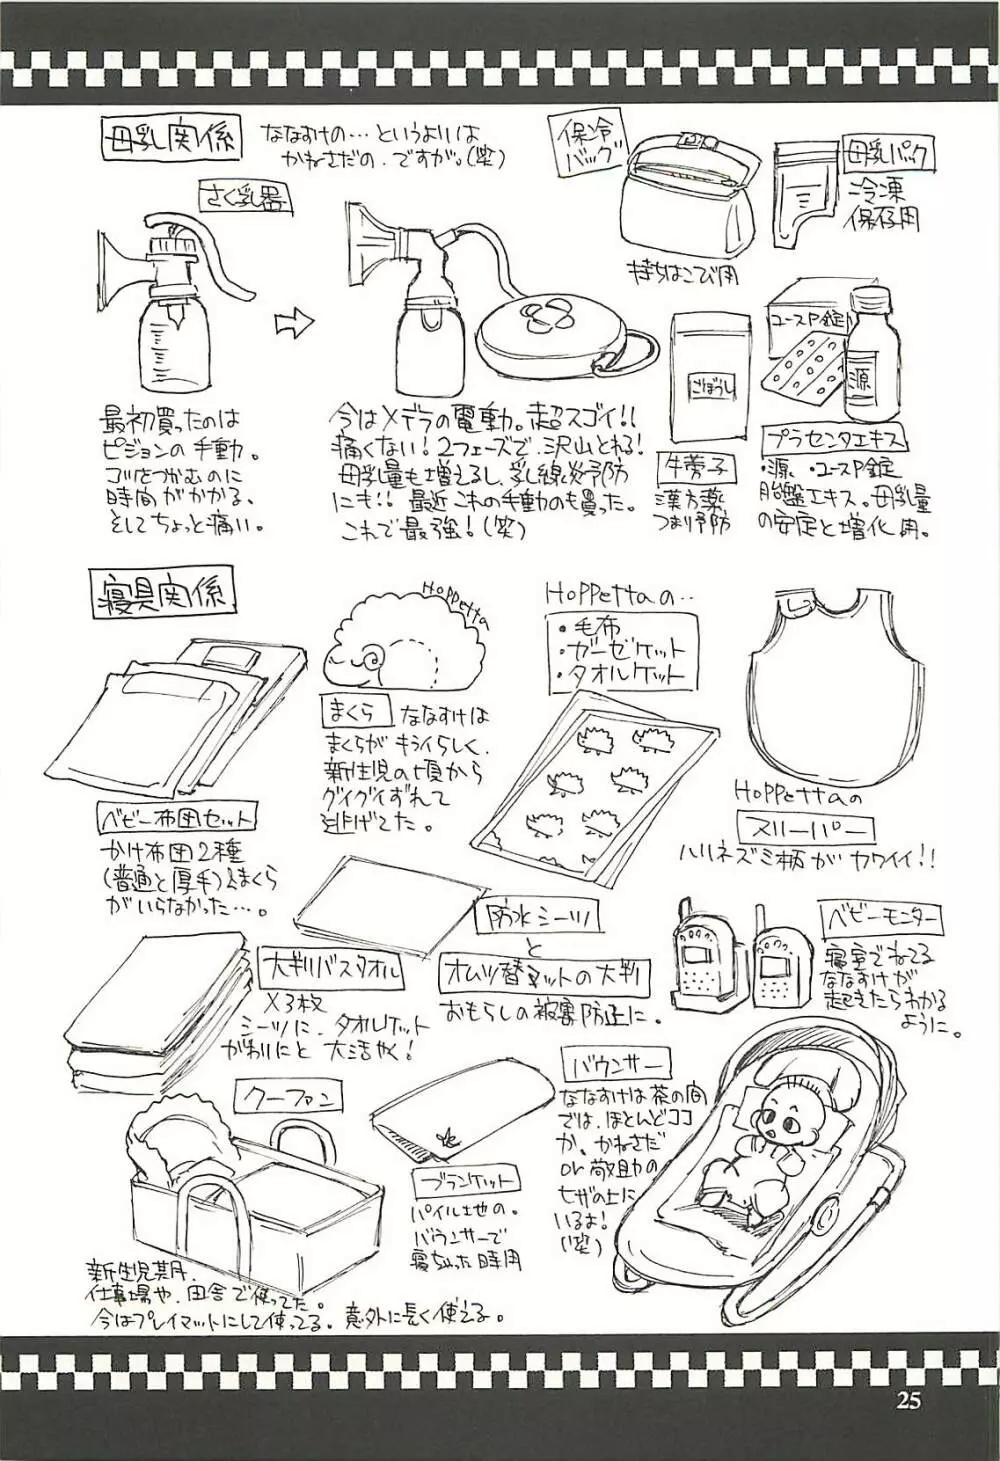 母乳関係
ななすけの…というよりは
かねさだの、ですが。(笑)
さく乳器
最初買ったのは
ピジョンの手動。
コツをつかむのに
時間がかかる、
そしてちょっと痛い。
今はメデラの電動。超スゴイ!!
痛くない!2フェーズで、沢山とれる!
母乳量も増えるし、乳線炎予防
にも!!最近これの手動のも買った。
これで最強!(笑)
保冷
バッグ
持ちはこび用
母乳パック
冷凍
保存用
ごぼうし
牛蒡子
漢方薬
つまり予防
ユースP錠
源
プラセンタエキス
・源 ・ユースP錠
胎盤エキス。母乳量
の安定と増化用。
寝具関係
ベビー布団セット
かけ布団2種
(普通と厚手)、まくら
がいらなかった…。
Hoppetta
まくら
ななすけは
まくらがキライらしく、
新生児の頃から
グイグイずれて
逃げてた。
Hoppettaの‥
・毛布
・ガーゼケット
・タオルケット
Hoppettaの
スリーパー
ハリネズミ柄がカワイイ!!
大判バスタオル
×3枚
シーツに、タオルケット
がわりにと大活やく!
防水シーツ
と
オムツ替マットの大判
おもらしの被害防止に。
ベビーモニター
寝室でねてる
ななすけが
起きたらわかる
ように。
クーファン
新生児期、
仕事場や、田舎で使ってた。
今はプレイマットにして使ってる。意外に長く使える。
ブランケット
パイル地の。
バウンサーで
寝ちゃった時用
バウンサー
ななすけは茶の間
では、ほとんどココ
か、かねさだ
or 敬助の
ヒザの上に
いるよ!
(笑)
25